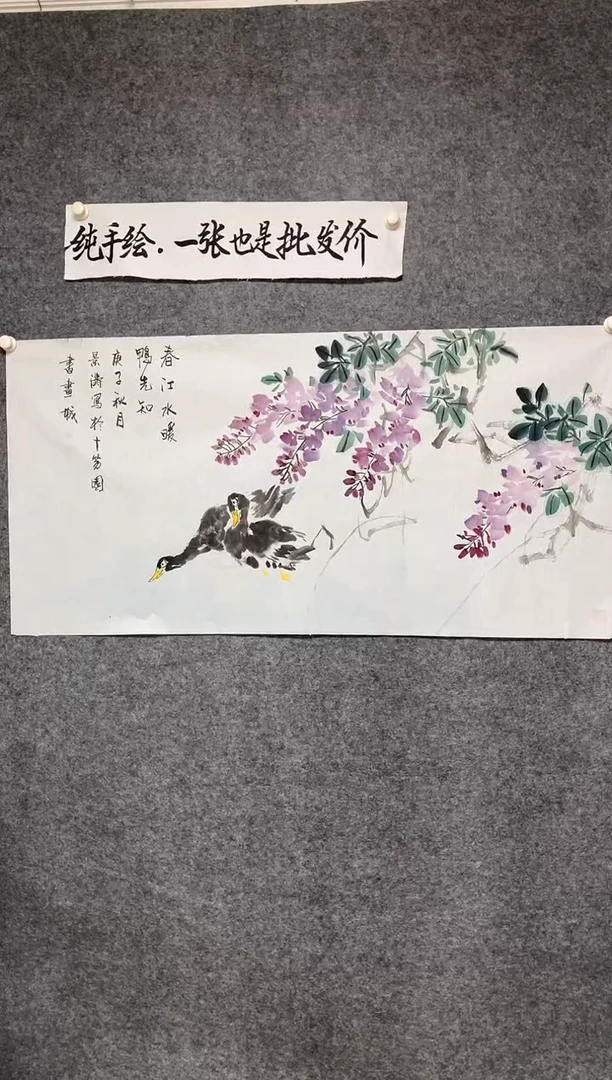 纯手绘.一张也是批发价
春江水暖
鴨先知
庚子秋月
景涛寫於十笏園
書畫城